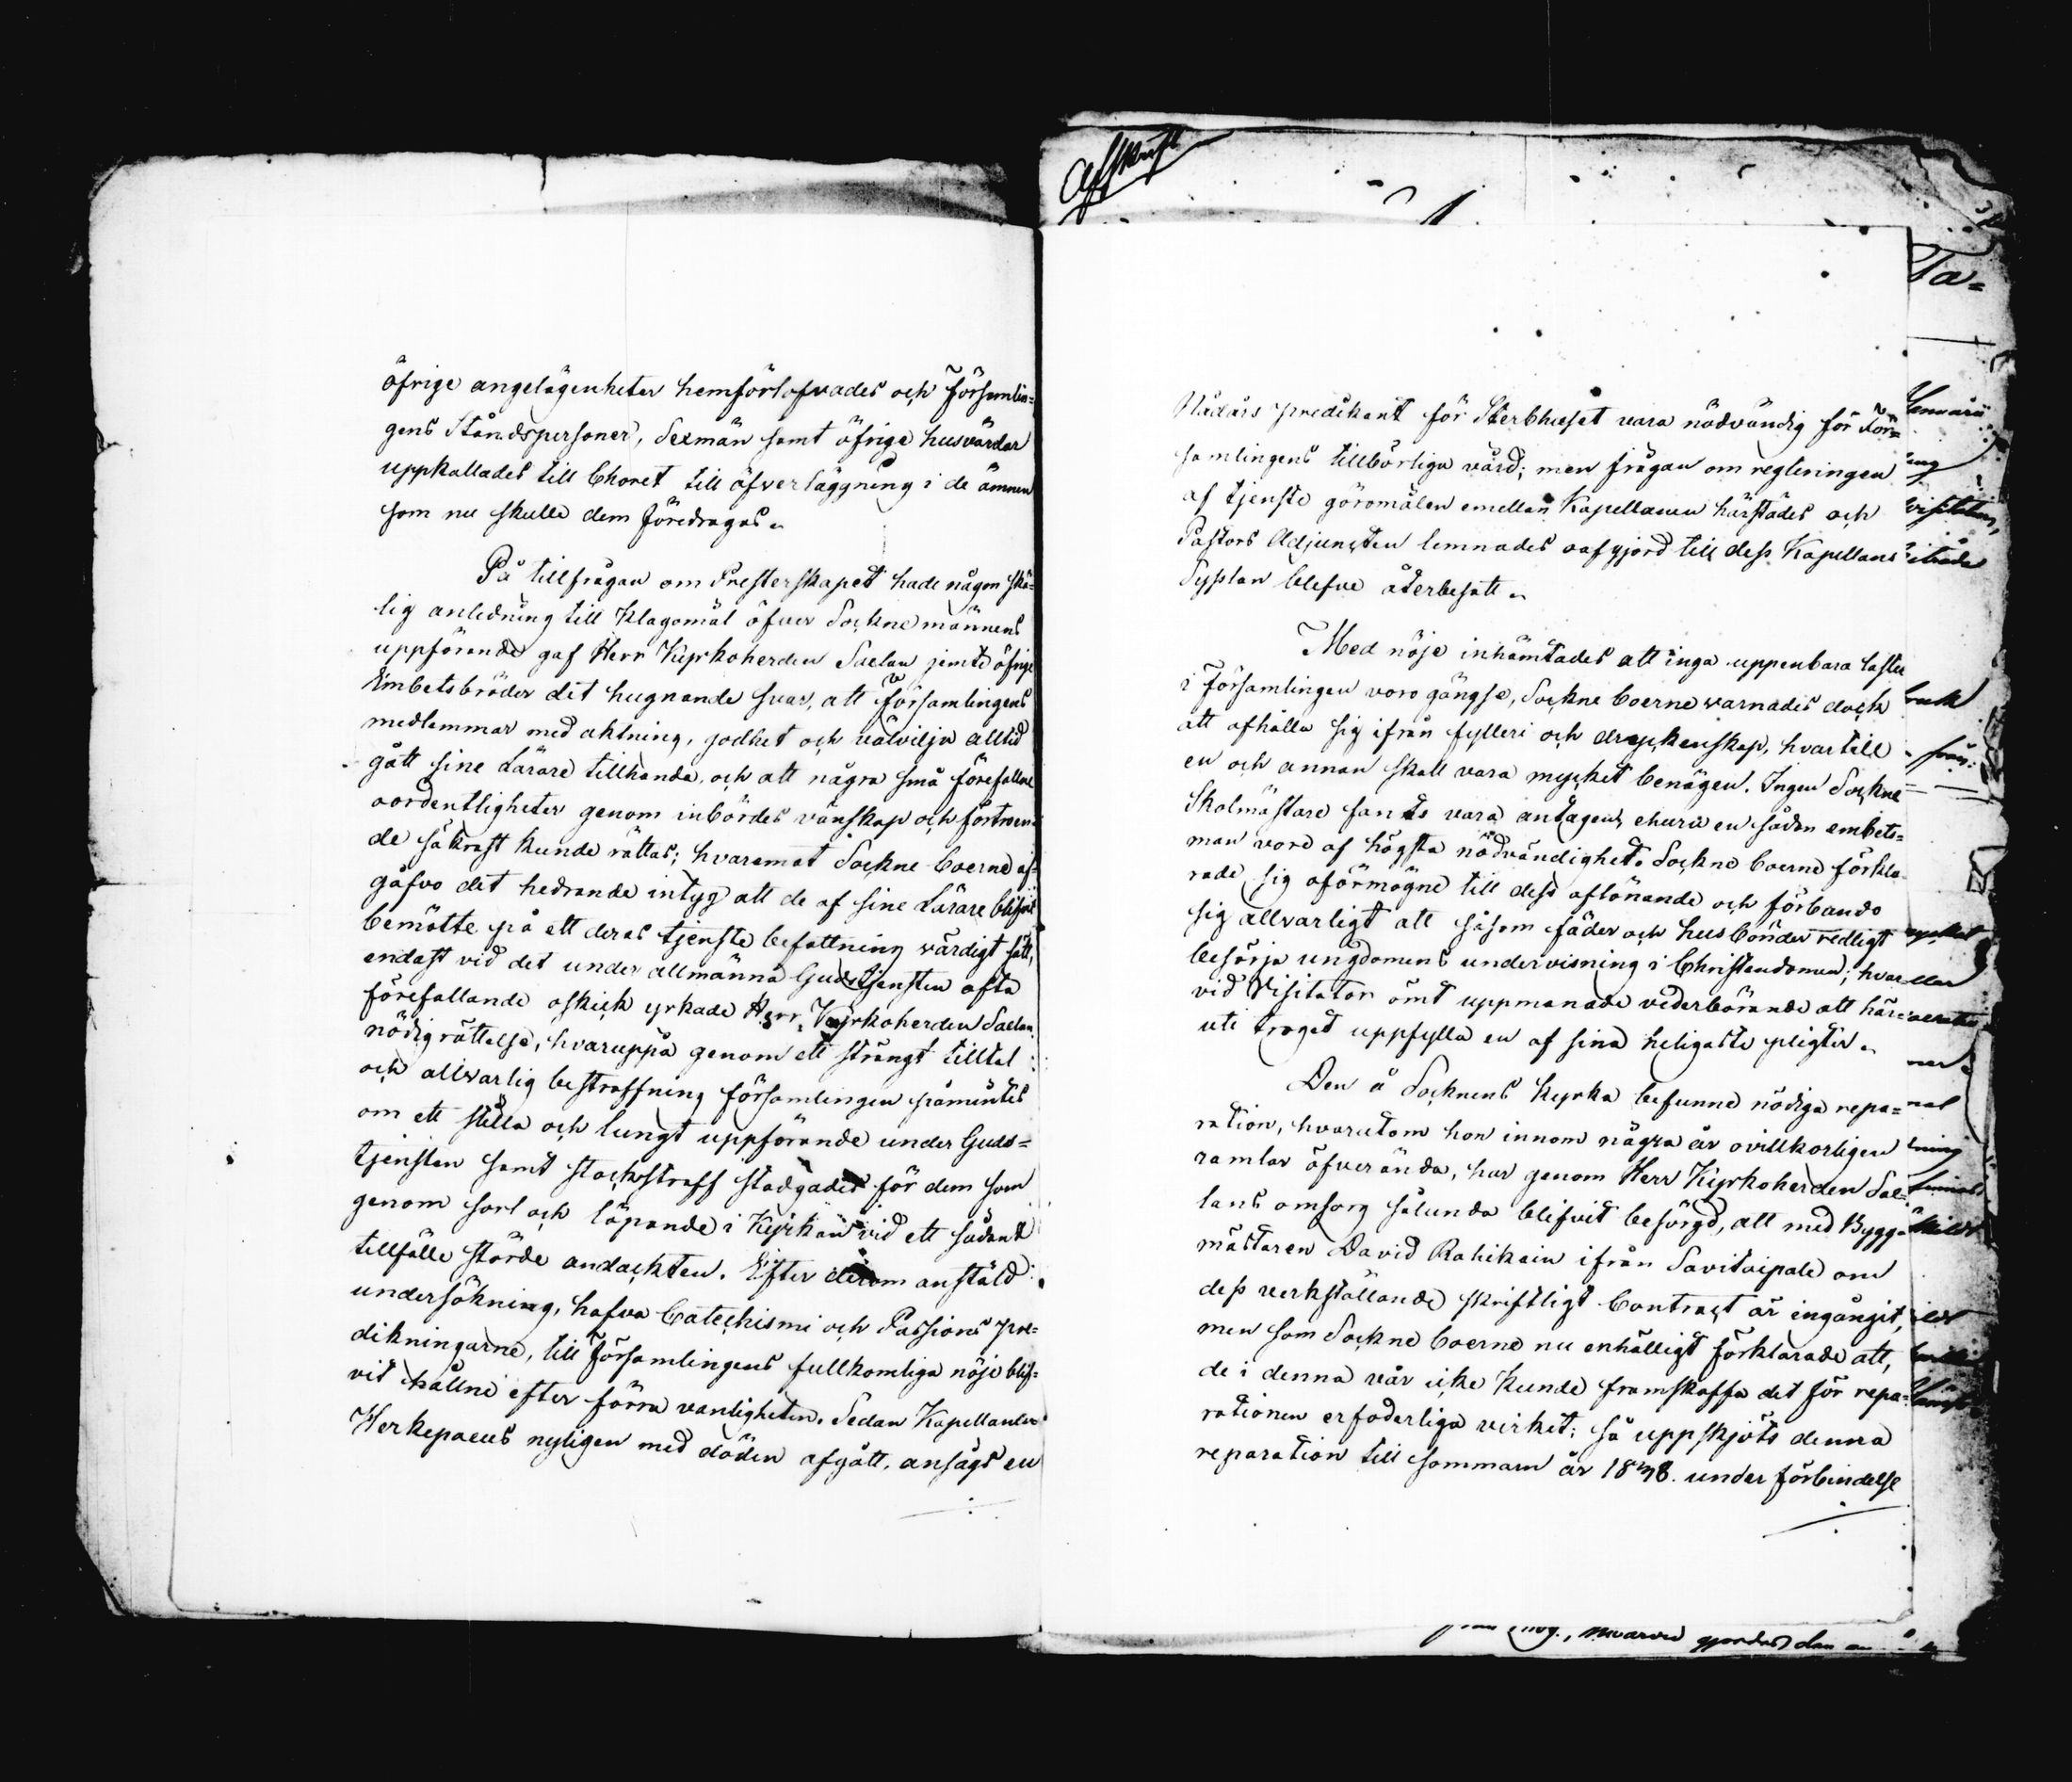 öfrige angelägenheter hemförlofvades och Församlin-
gens Ståndspersoner, Sexmän samt öfrige husvärdar
uppkallades till Choret till öfverläggning i de ämnen
som nu skulle dem föredragas.
På tillfrågan om Presterskapet hade någon skä-
lig anledning till klagomål öfver Sockne männens
uppförande gaf Herr Kyrkoherden Saelan jemte öfrige
Embetsbröder det hugnande svar, att församlingens
medlemmar med aktning, godhet och välvilja alltid
gått sine Lärare tillhanda, och att några små förefallne
oordentligheter genom inbördes vänskap och förtroen-
de såkrast kunde rättas; hvaremot Sockne boerne af-
gåfvo det hedrande intyg att de af sine Lärare blifvit
bemötte på ett deras tjenste befattning värdigt sätt,
endast vid det under allmänna Gudstjensten ofta
förefallande oskick yrkade Herr Kyrkoherden Saelan
nödig rättelse, hvaruppå genom ett strängt tilltal
och allvarlig bestraffning församlingen påmintes
om ett stilla och lungt uppförande under Guds-
tjensten samt stockstraff stadgades för dem som
genom sorl och löpande i Kyrkan vid ett sådant
tillfälle störde andackten. Efter derom anstäld
undersökning, hafva Catechismi och Passions pre-
dikningarne, till Församlingens fullkomliga nöje blif-
vit hållne efter förra vanligheten. Sedan Kapellanen
Herkepaeus nyligen med döden afgått, ansågs en
Afskrift
Ta-
Nådårs predikant för Sterbhuset vara nödvändig för För-
samlingens tillbörliga vård; men frågan om regleringen
af tjenste göromålen emellan Kapellanen härstädes och
Pastors Adjuncten lemnades oafgjord till dess Kapellans
Sysslan blefve återbesatt.
Med nöje inhämtades att inga uppenbara laster
i Församlingen voro gängse, Sockne boerne warnades dock
att afhålla sig ifrån fylleri och dryckenskap, hvartill
en och annan skall vara mycket benägen. Ingen Sockne
Skolmästare fants vara antagen, ehuru en sådan embets-
man vore af högsta nödvändighet. Sockne boerne förkla-
rade sig oförmögne till dess aflönande och förbando
sig allvarligt att såsom fäder och husbönder redligt
besörja ungdomens undervisning i Christendomen; hvar
vid Visitator ömt uppmanade vederbörande att här-
uti troget uppfylla en af sina heligaste pligter.
Den å Socknens Kyrka befunne nödiga repa-
ration, hvarutom hon innom några år ovillkorligen
ramlar öfverända, har genom Herr Kyrkoherden Sae-
lans omsorg sålunda blifvit besörgd, att med Bygg-
mästaren David Rahikain ifrån Savitaipale om
dess verkställande skriftligt Contract är ingångit,
men som Sockne boerne nu enhälligt förklarade att,
de i denna vår icke kunde framskaffa det för repa-
rationen erfoderliga virket; så uppskjöts denna
reparation till sommarn år 1838. under förbindelse